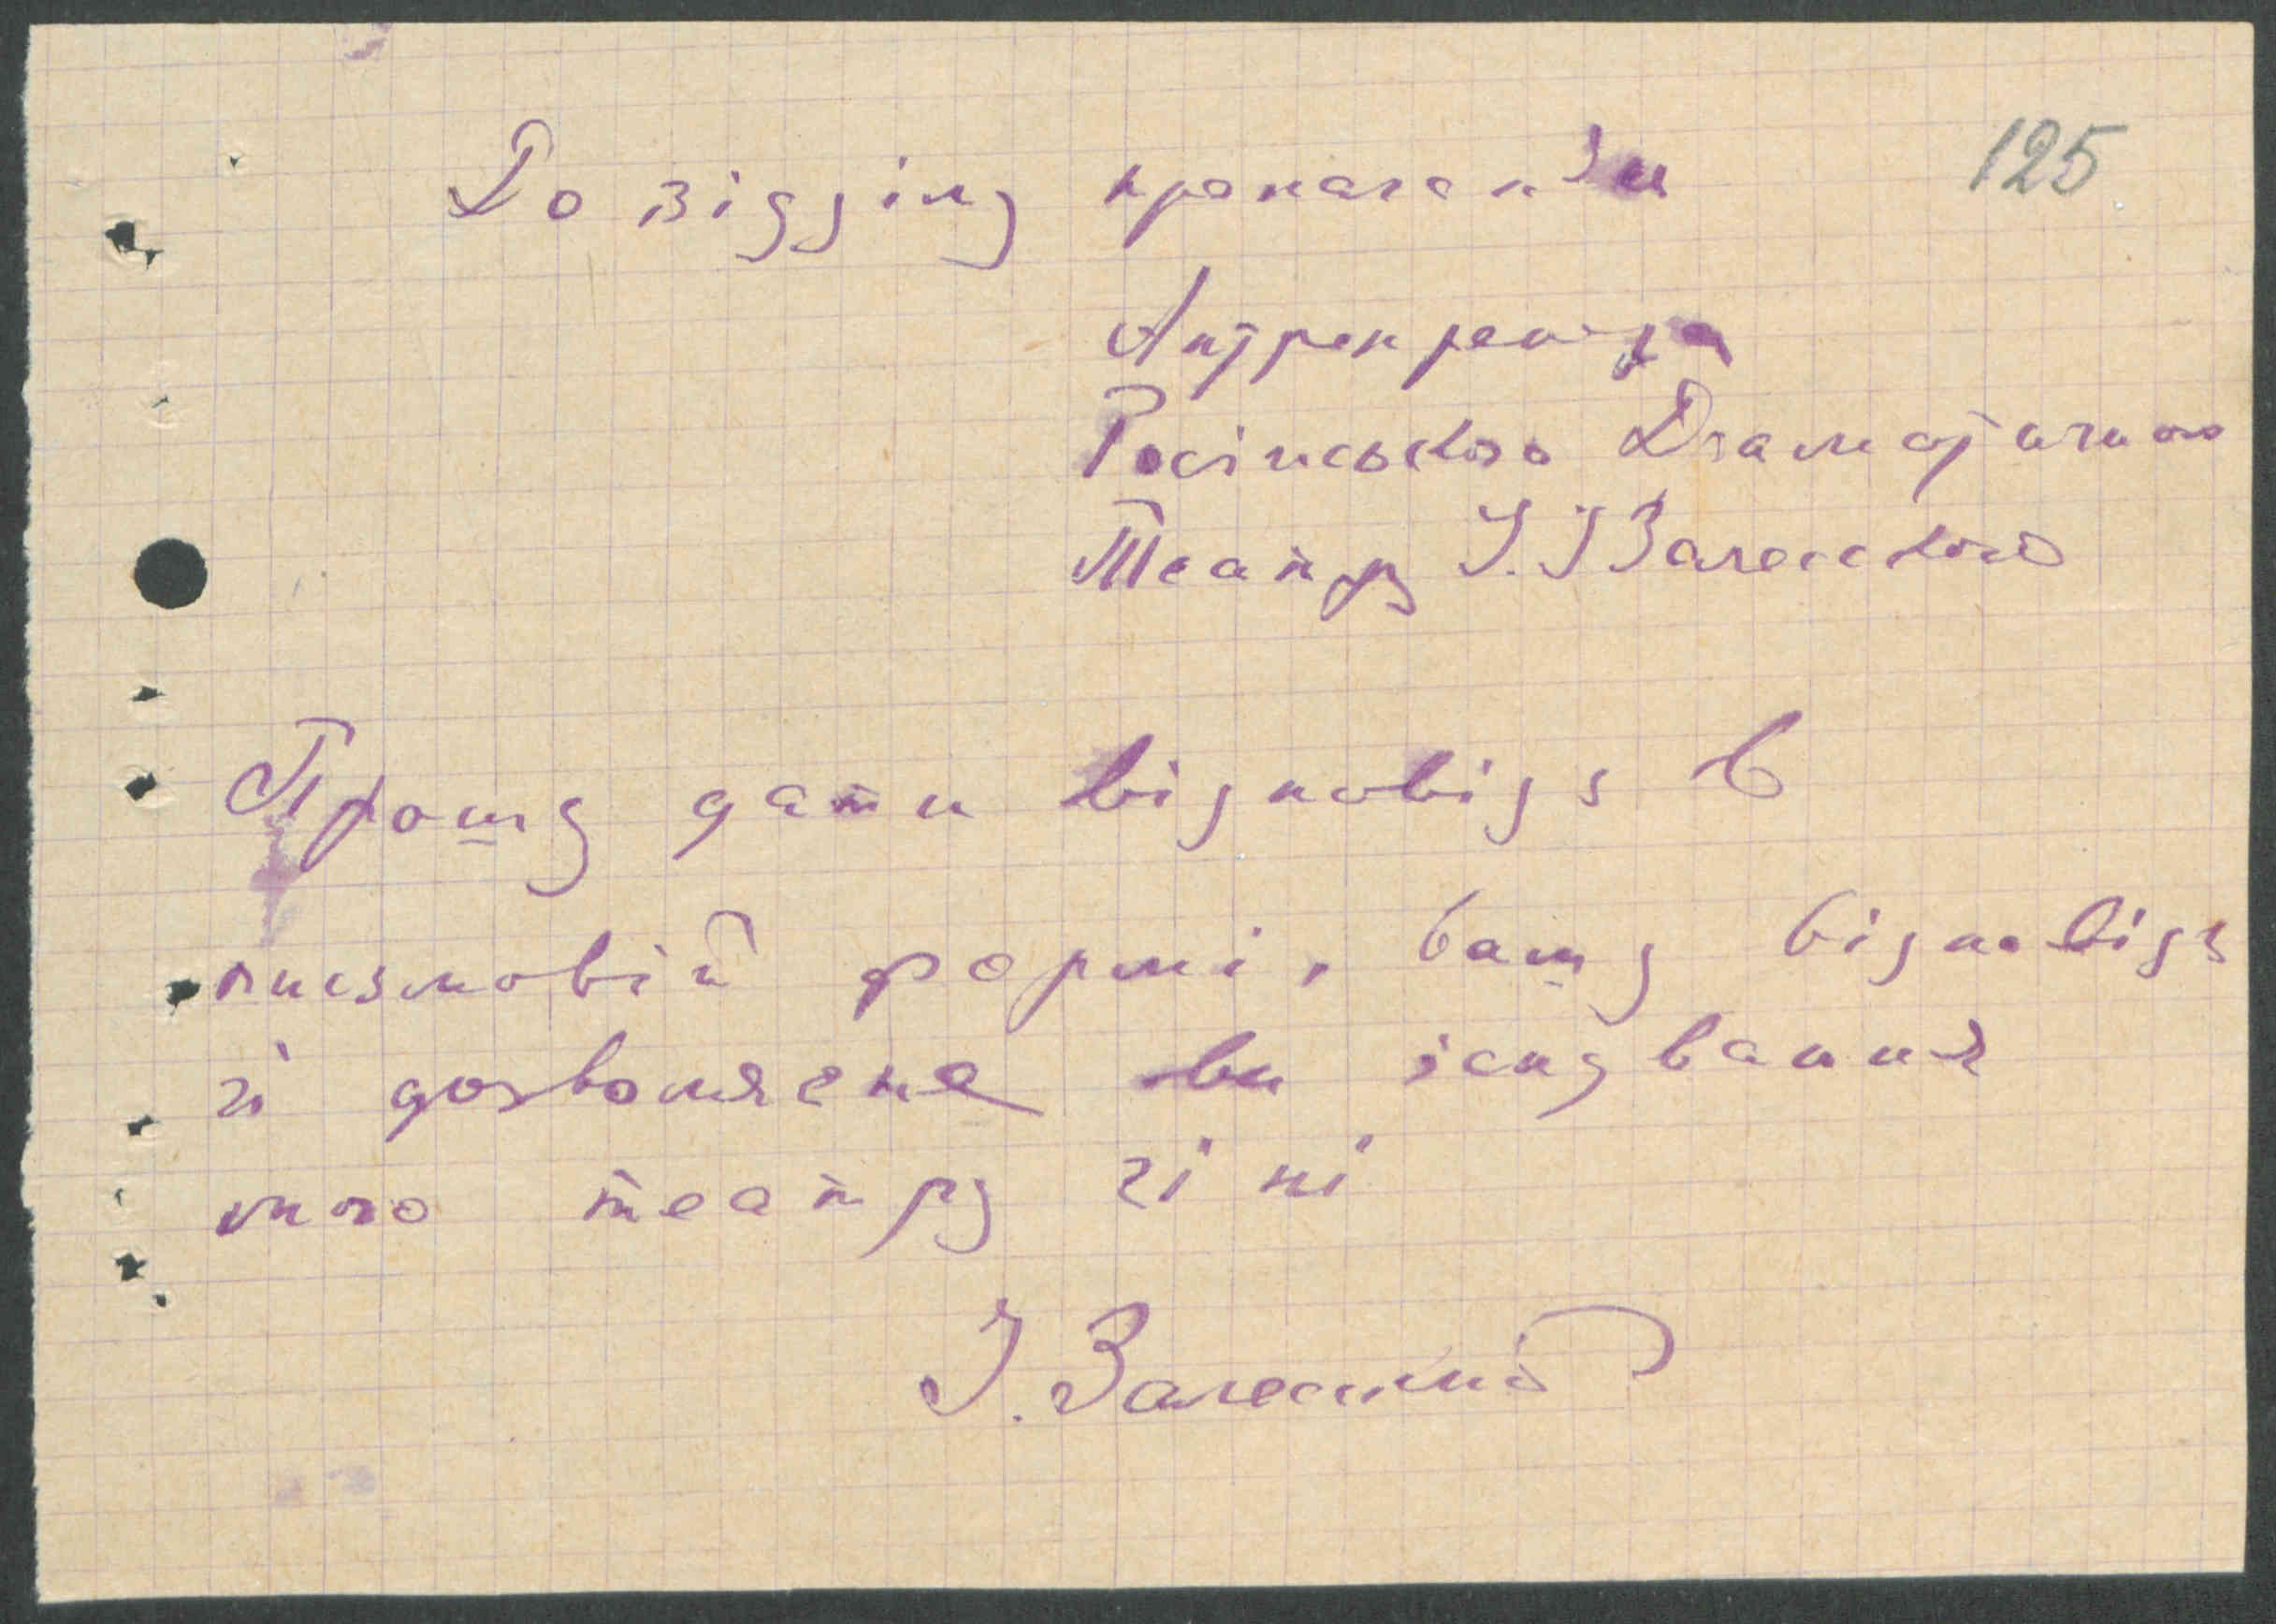 125
До відділу пропаганди
Антрепренера
Російського Драматичного
Театру І. І Залеського
Прошу дати відповідь в
писмовій формі, вашу відповідь
чі дозволяєте ви існування
мого театру чі ні
І. Залеський